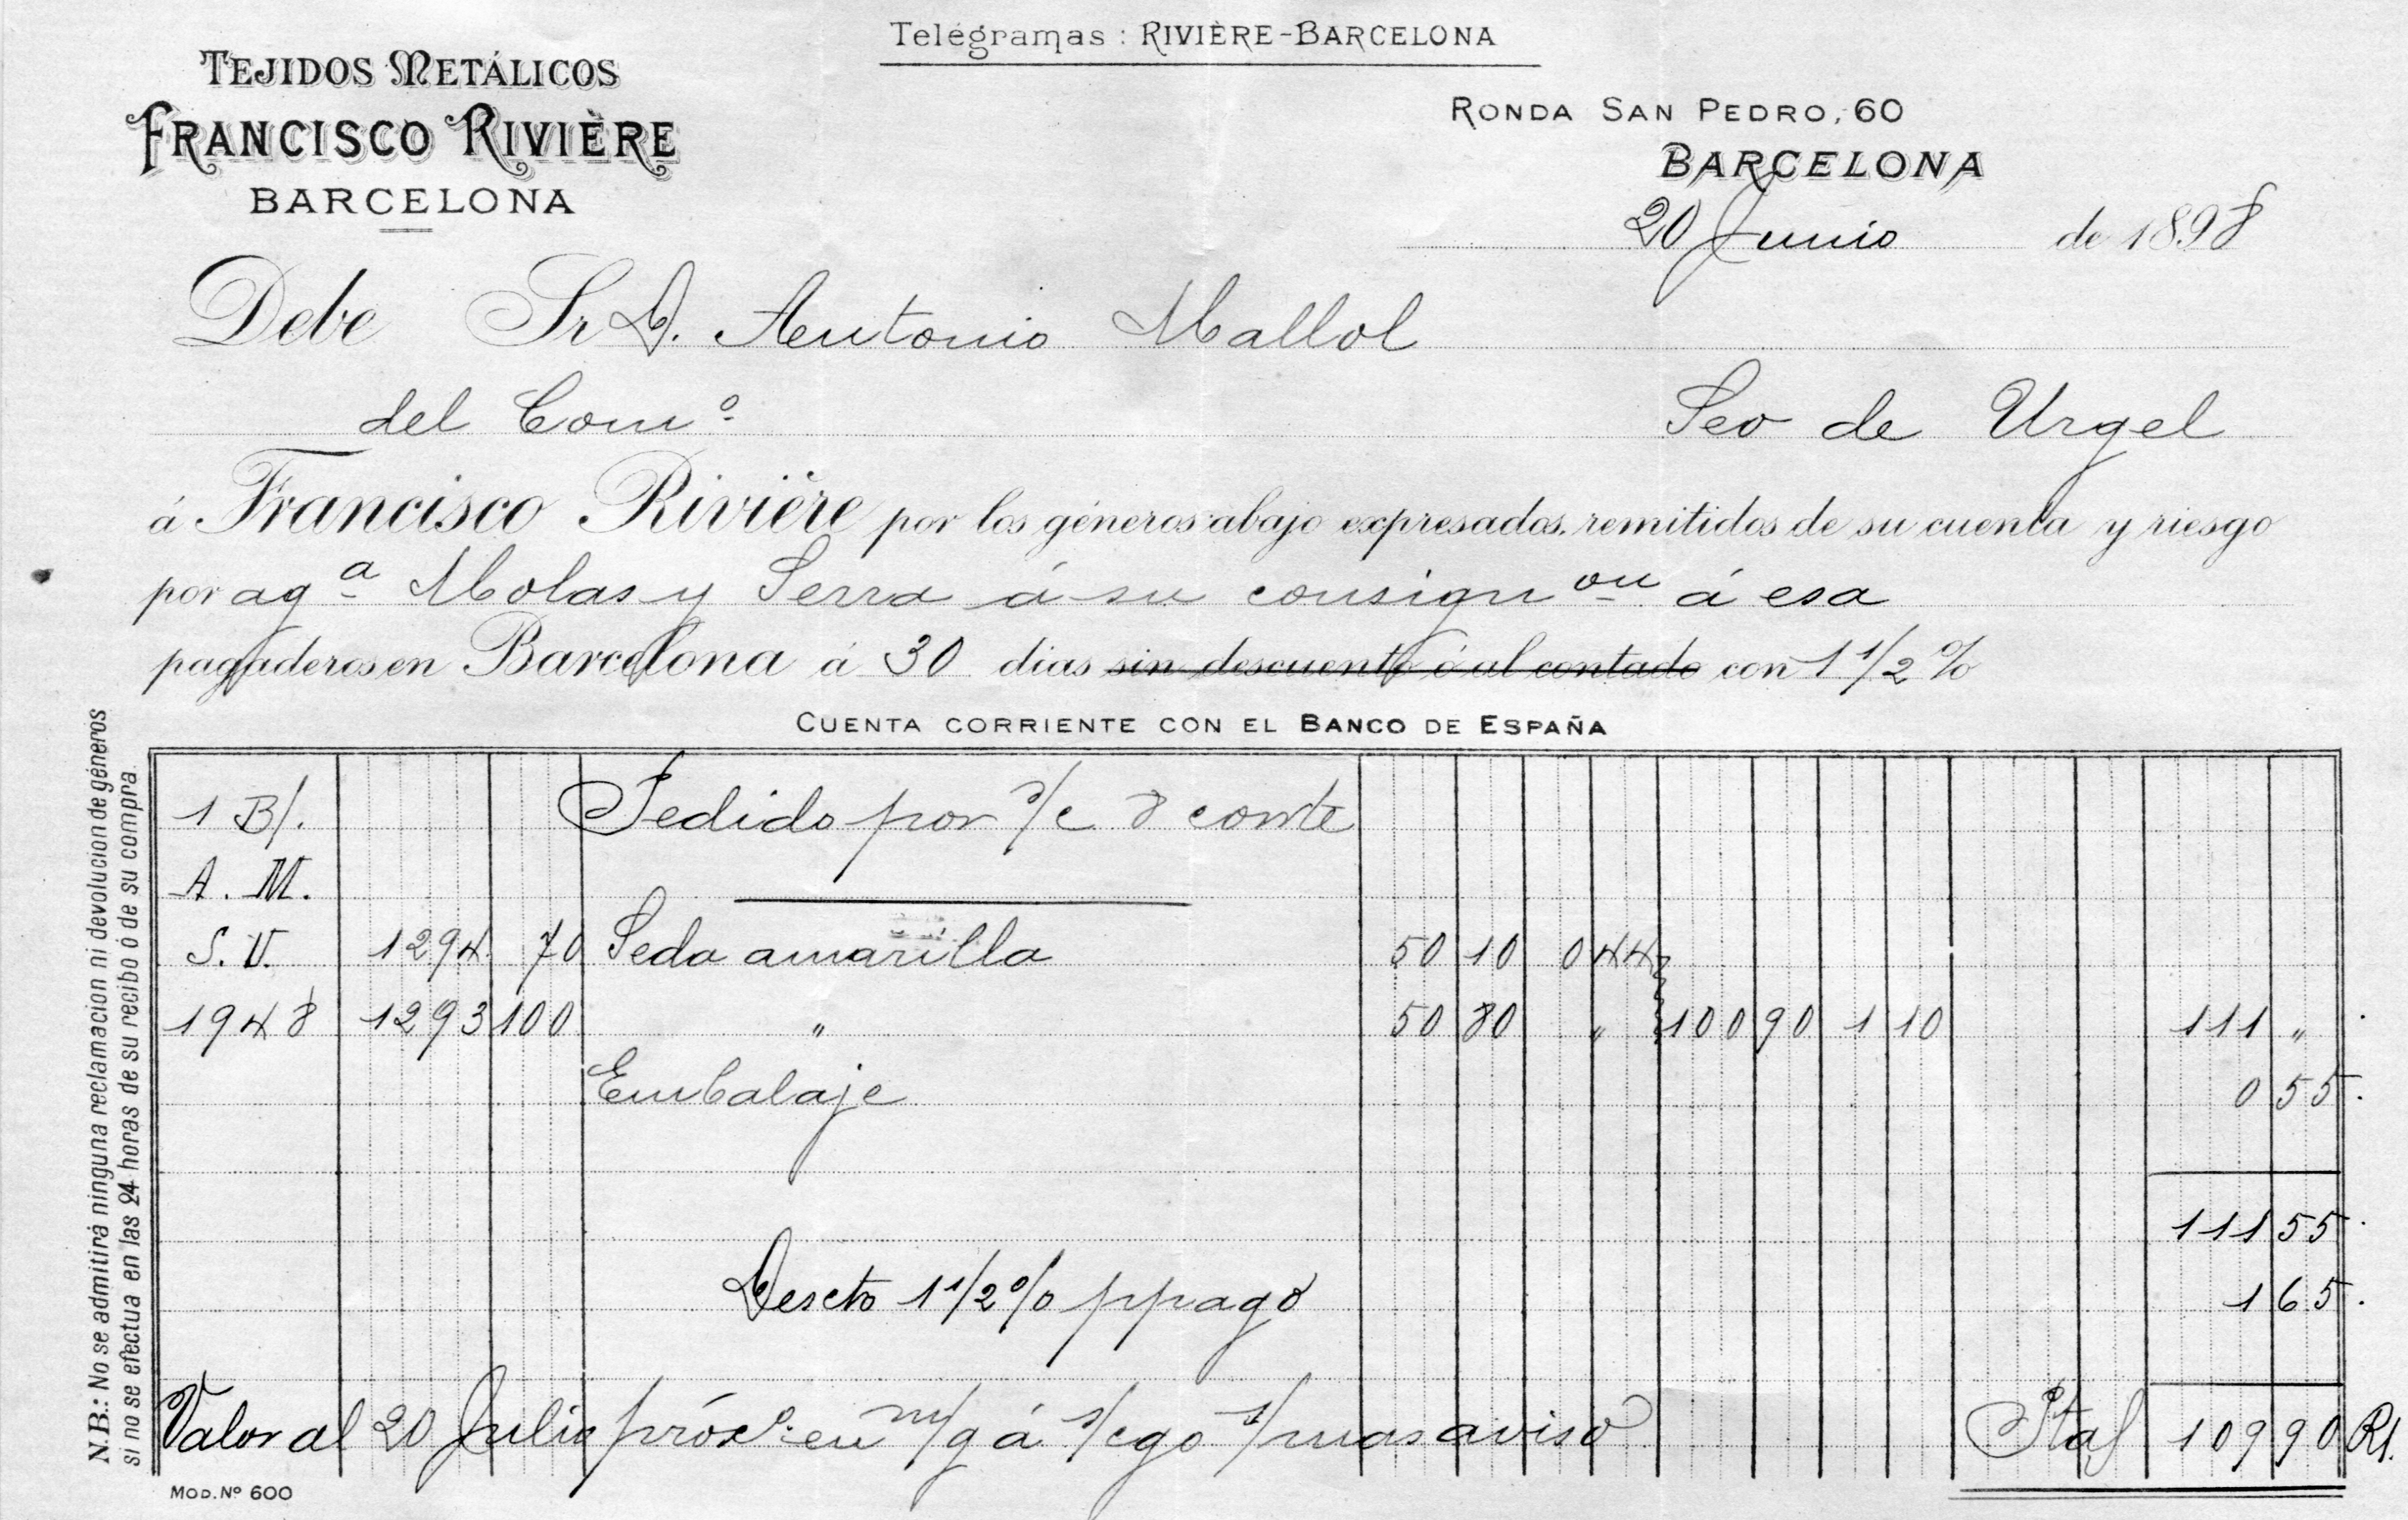 Telégramas : RIVIÈRE-BARCELONA
TEJIDOS METÁLICOS
FRANCISCO RIVIÈRE
BARCELONA
RONDA SAN PEDRO, 60
BARCELONA
20 Junio de 1898
Debe Sr D. Antonio Mallol
del Comº
Seo de Urgel
á Francisco Rivière por los géneros abajo expresados, remitidos de su cuenta y riesgo
por agª Molas y Serra á su consignon á esa
pagaderos en Barcelona á 30 dias sin descuento ó al contado con 1 1/2 %
CUENTA CORRIENTE CON EL BANCO DE ESPAÑA
N.B.: No se admitirá ninguna reclamacion ni devolucion de géneros
si no se efectua en las 24 horas de su recibo ó de su compra.
1 B/. Pedido por s/c 8 corrte
A. M.
S. U. 1294 70 Seda amarilla 50 10 0 44
1948 1293 100 " 50 80 " 100 90 1 10 111 "
Embalaje 0 55.
111 55
Descto 1 1/2 % ppago 1 65.
Valor al 20 Julio próxº en m/g á s/cgo s/mas aviso Ptas 109 90 Rl.
MOD. Nº 600